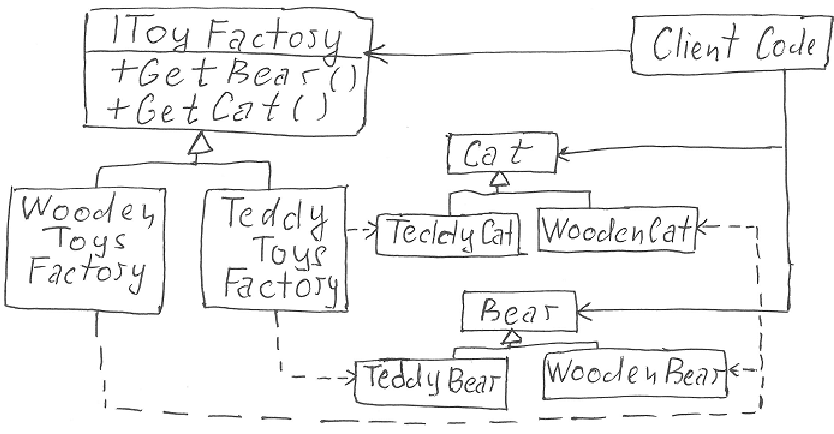 IToy Factory
+Get Bear()
+Get Cat()
Client Code
Cat
Wooden
Toys
Factory
Teddy
Toys
Factory
TeddyCat
WoodenCat
Bear
TeddyBear
WoodenBear